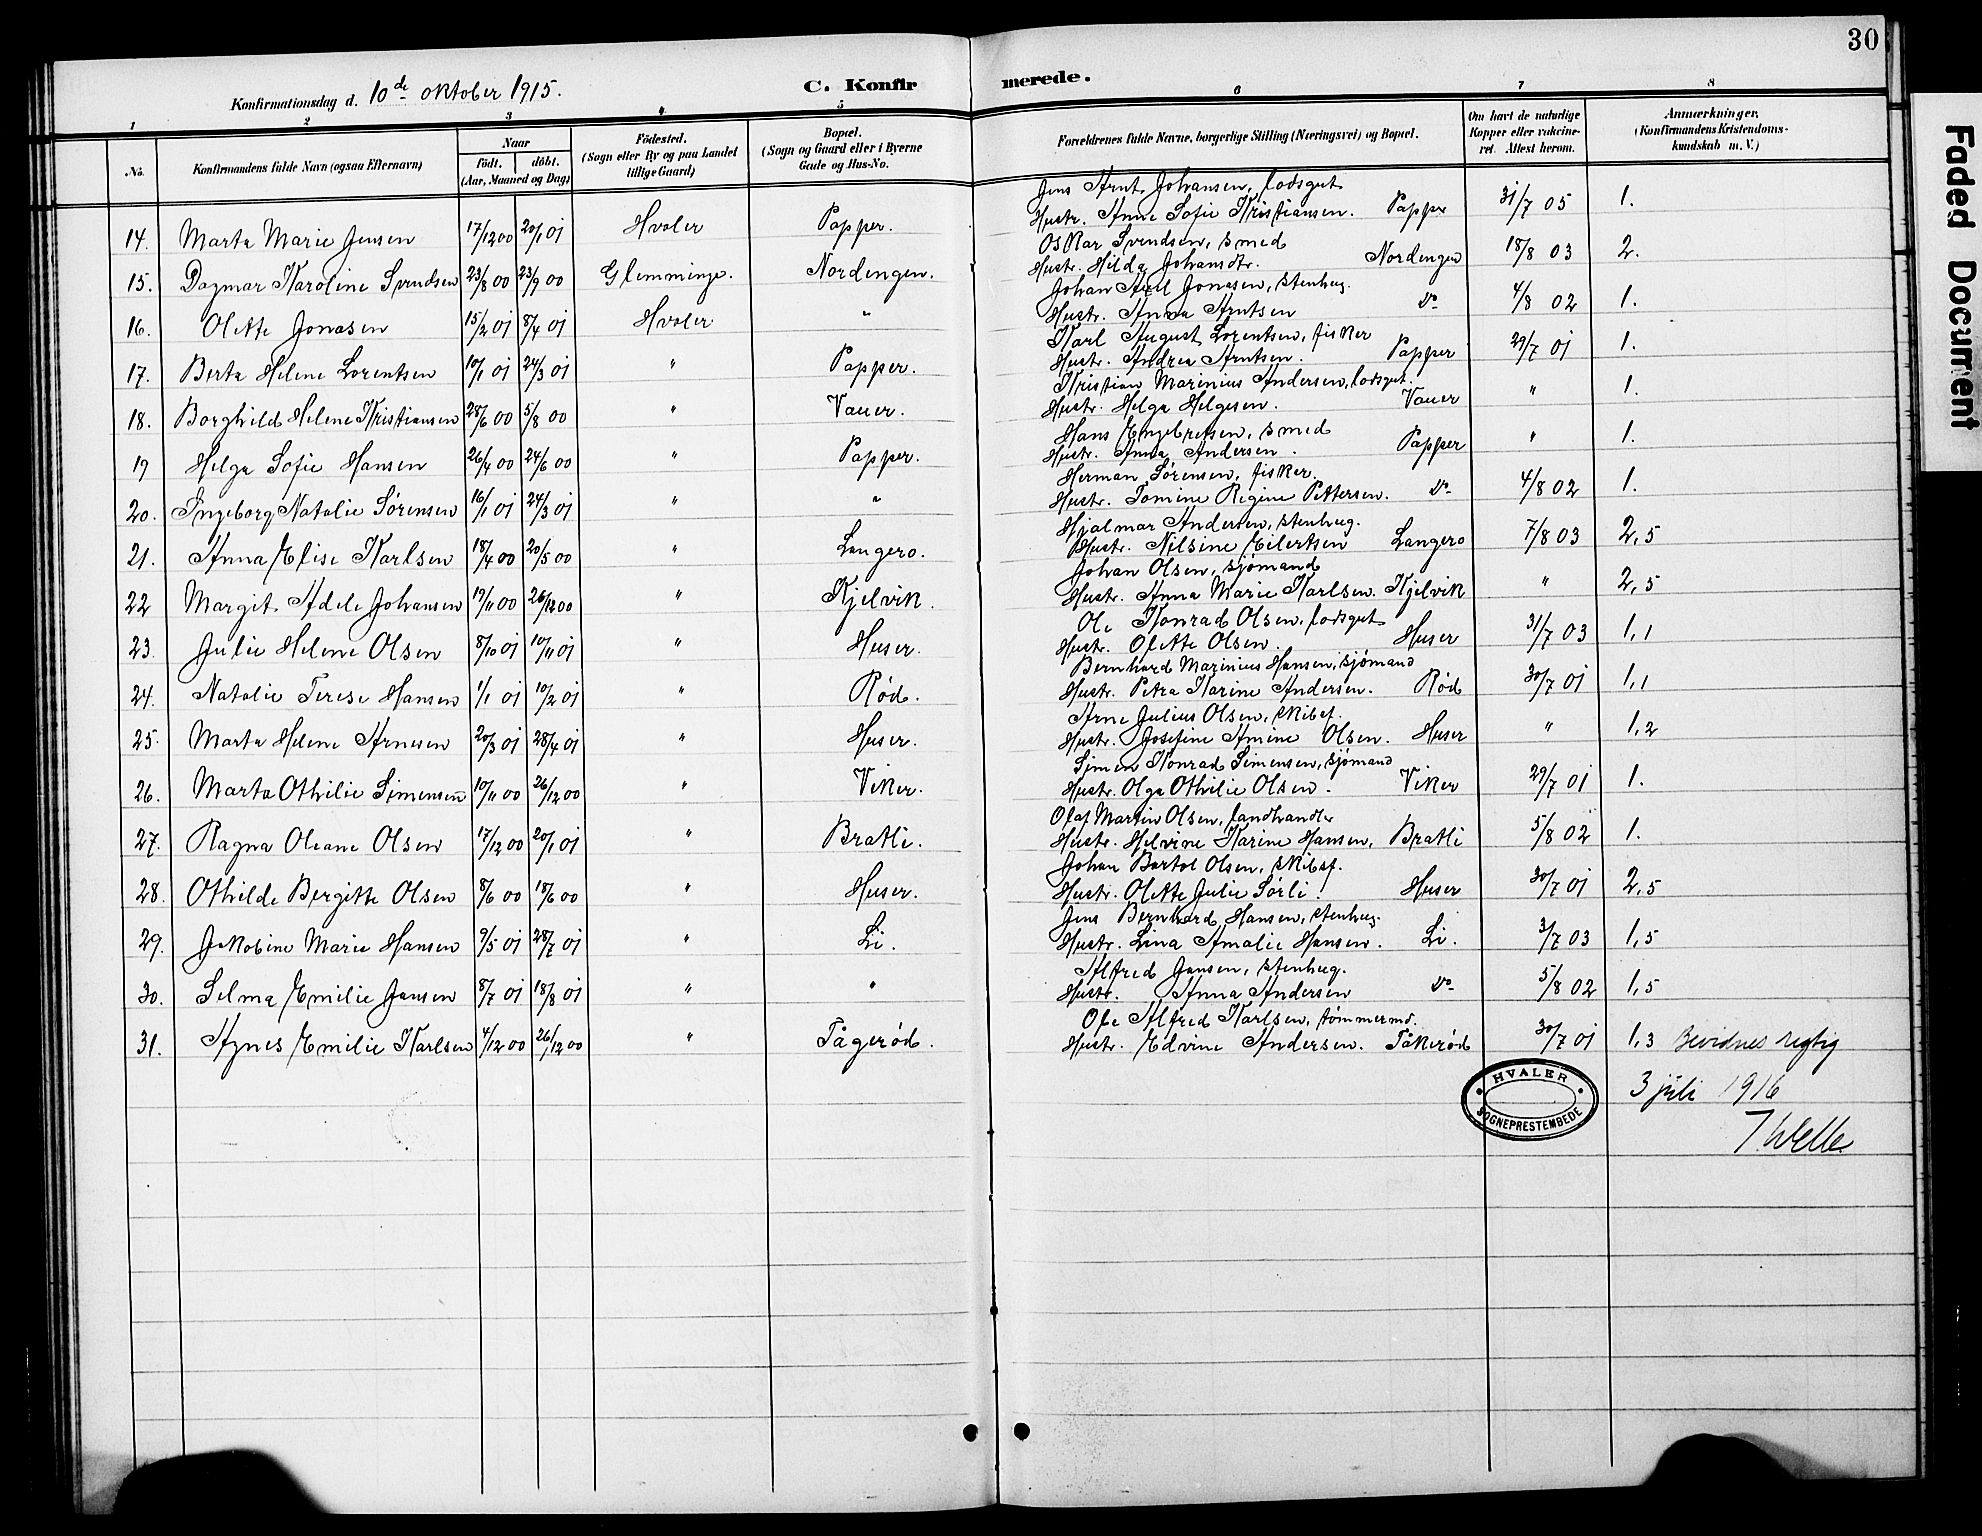 30
Konfirmationsdag d. 10de Oktober 1915.
C. Konfirmerede.
1 2 3 4 5 6 7 8
No. Konfirmandens fulde Navn (ogsaa Efternavn) Naar født. døbt. (Aar, Maaned og Dag) Fødested. (Sogn eller By og paa Landet tillige Gaard) Bopæl. (Sogn og Gaard eller i Byerne Gade og Hus-No. Forældrenes fulde Navne, borgerlige Stilling (Næringsvei) og Bopæl. Om havt de naturlige Kopper eller vakcineret. Attest herom. Anmærkninger. (Konfirmandens Kristendomskundskab m. V.)
Jens Arnt Johansen, lodsgut
14. Marta Marie Jensen 17/12 00 20/1 01 Hvaler Papper. Hustr. Anne Sofie Kristiansen. Papper 31/7 05 1.
Oskar Svendsen, smed
15. Dagmar Karoline Svendsen 23/8 00 23/9 00 Glemminge. Nordengen. Hustr. Hilda Johansdtr. Nordengen 18/8 03 2.
Johan Axel Jonasen, stenhug.
16. Olette Jonasen 15/2 01 8/4 01 Hvaler " Hustr. Anna Arntsen do 4/8 02 1.
Karl August Lorentsen, fisker
17. Berta Helene Lorentsen 10/1 01 24/3 01 " Papper. Hustr. Andrea Arntsen. Papper 29/7 01 1.
Kristian Marinius Andersen, lodsgut.
18. Borghild Helene Kristiansen 28/6 00 5/8 00 " Vauer. Hustr. Helga Helgesen. Vauer " 1.
Hans Engebretsen, smed
19 Helga Sofie Hansen 26/4 00 24/6 00 " Papper. Hustr. Anna Andersen. Papper " 1.
Herman Sørensen, fisker.
20. Ingeborg Natalie Sørensen 16/1 01 24/3 01 " " Hustr. Tomine Regine Pettersen. do 4/8 02 1.
Hjalmar Andersen, stenhug.
21. Anna Elise Karlsen 18/4 00 20/5 00 " Langero. Hustr. Nilsine Eilertsen Langero 7/8 03 2,5
Johan Olsen, sjømand
22 Margit Adele Johansen 19/11 00 26/12 00 " Kjelvik. Hustr. Anna Marie Karlsen. Kjelvik " 2,5
Ole Konrad Olsen, lodsgut
23. Julie Helene Olsen 8/10 01 10/11 01 " Huser. Hustr. Olette Olsen. Huser 31/7 03 1,1
Bernhard Marinius Hansen, sjømand
24. Natalie Terese Hansen 1/1 01 10/2 01 " Rød. Hustr. Petra Karine Andersen. Rød 30/7 01 1,1
Arne Julius Olsen, skibsf.
25. Marta Helene Arnesen 20/3 01 28/4 01 " Huser. Hustr. Josefine Amine Olsen. Huser " 1,2
Simen Konrad Simensen, sjømand
26. Marta Othilie Simensen 10/11 00 26/12 00 " Viker. Hustr. Olga Othilie Olsen. Viker 29/7 01 1.
Olaf Martin Olsen, landhandler
27. Ragna Oleane Olsen 17/12 00 20/1 01 " Bratli. Hustr. Helvine Karine Hansen, Bratli 5/8 02 1.
Johan Bartol Olsen, skibsf.
28. Othilde Bergitte Olsen 8/6 00 18/6 00 " Huser. Hustr. Olette Julie Sørli. Huser 30/7 01 2,5
Jens Bernhard Hansen, stenhug.
29. Jakobine Marie Hansen 9/5 01 28/7 01 " Li. Hustr. Lina Amalie Hansen. Li. 3/7 03 1,5
Alfred Jansen, stenhug.
30. Selma Emilie Jansen 8/7 01 18/8 01 " " Hustr. Anna Andersen do 5/8 02 1,5
Ole Alfred Karlsen, tømmermd.
31. Agnes Emilie Karlsen 4/12 00 26/12 00 " Tågerød. Hustr. Edvine Andersen. Tåkerød 30/7 01 1,3 Bevidnes rigtig
HVALER SOGNEPRESTEMBEDE
3 juli 1916
T. Welle.
Faded Document